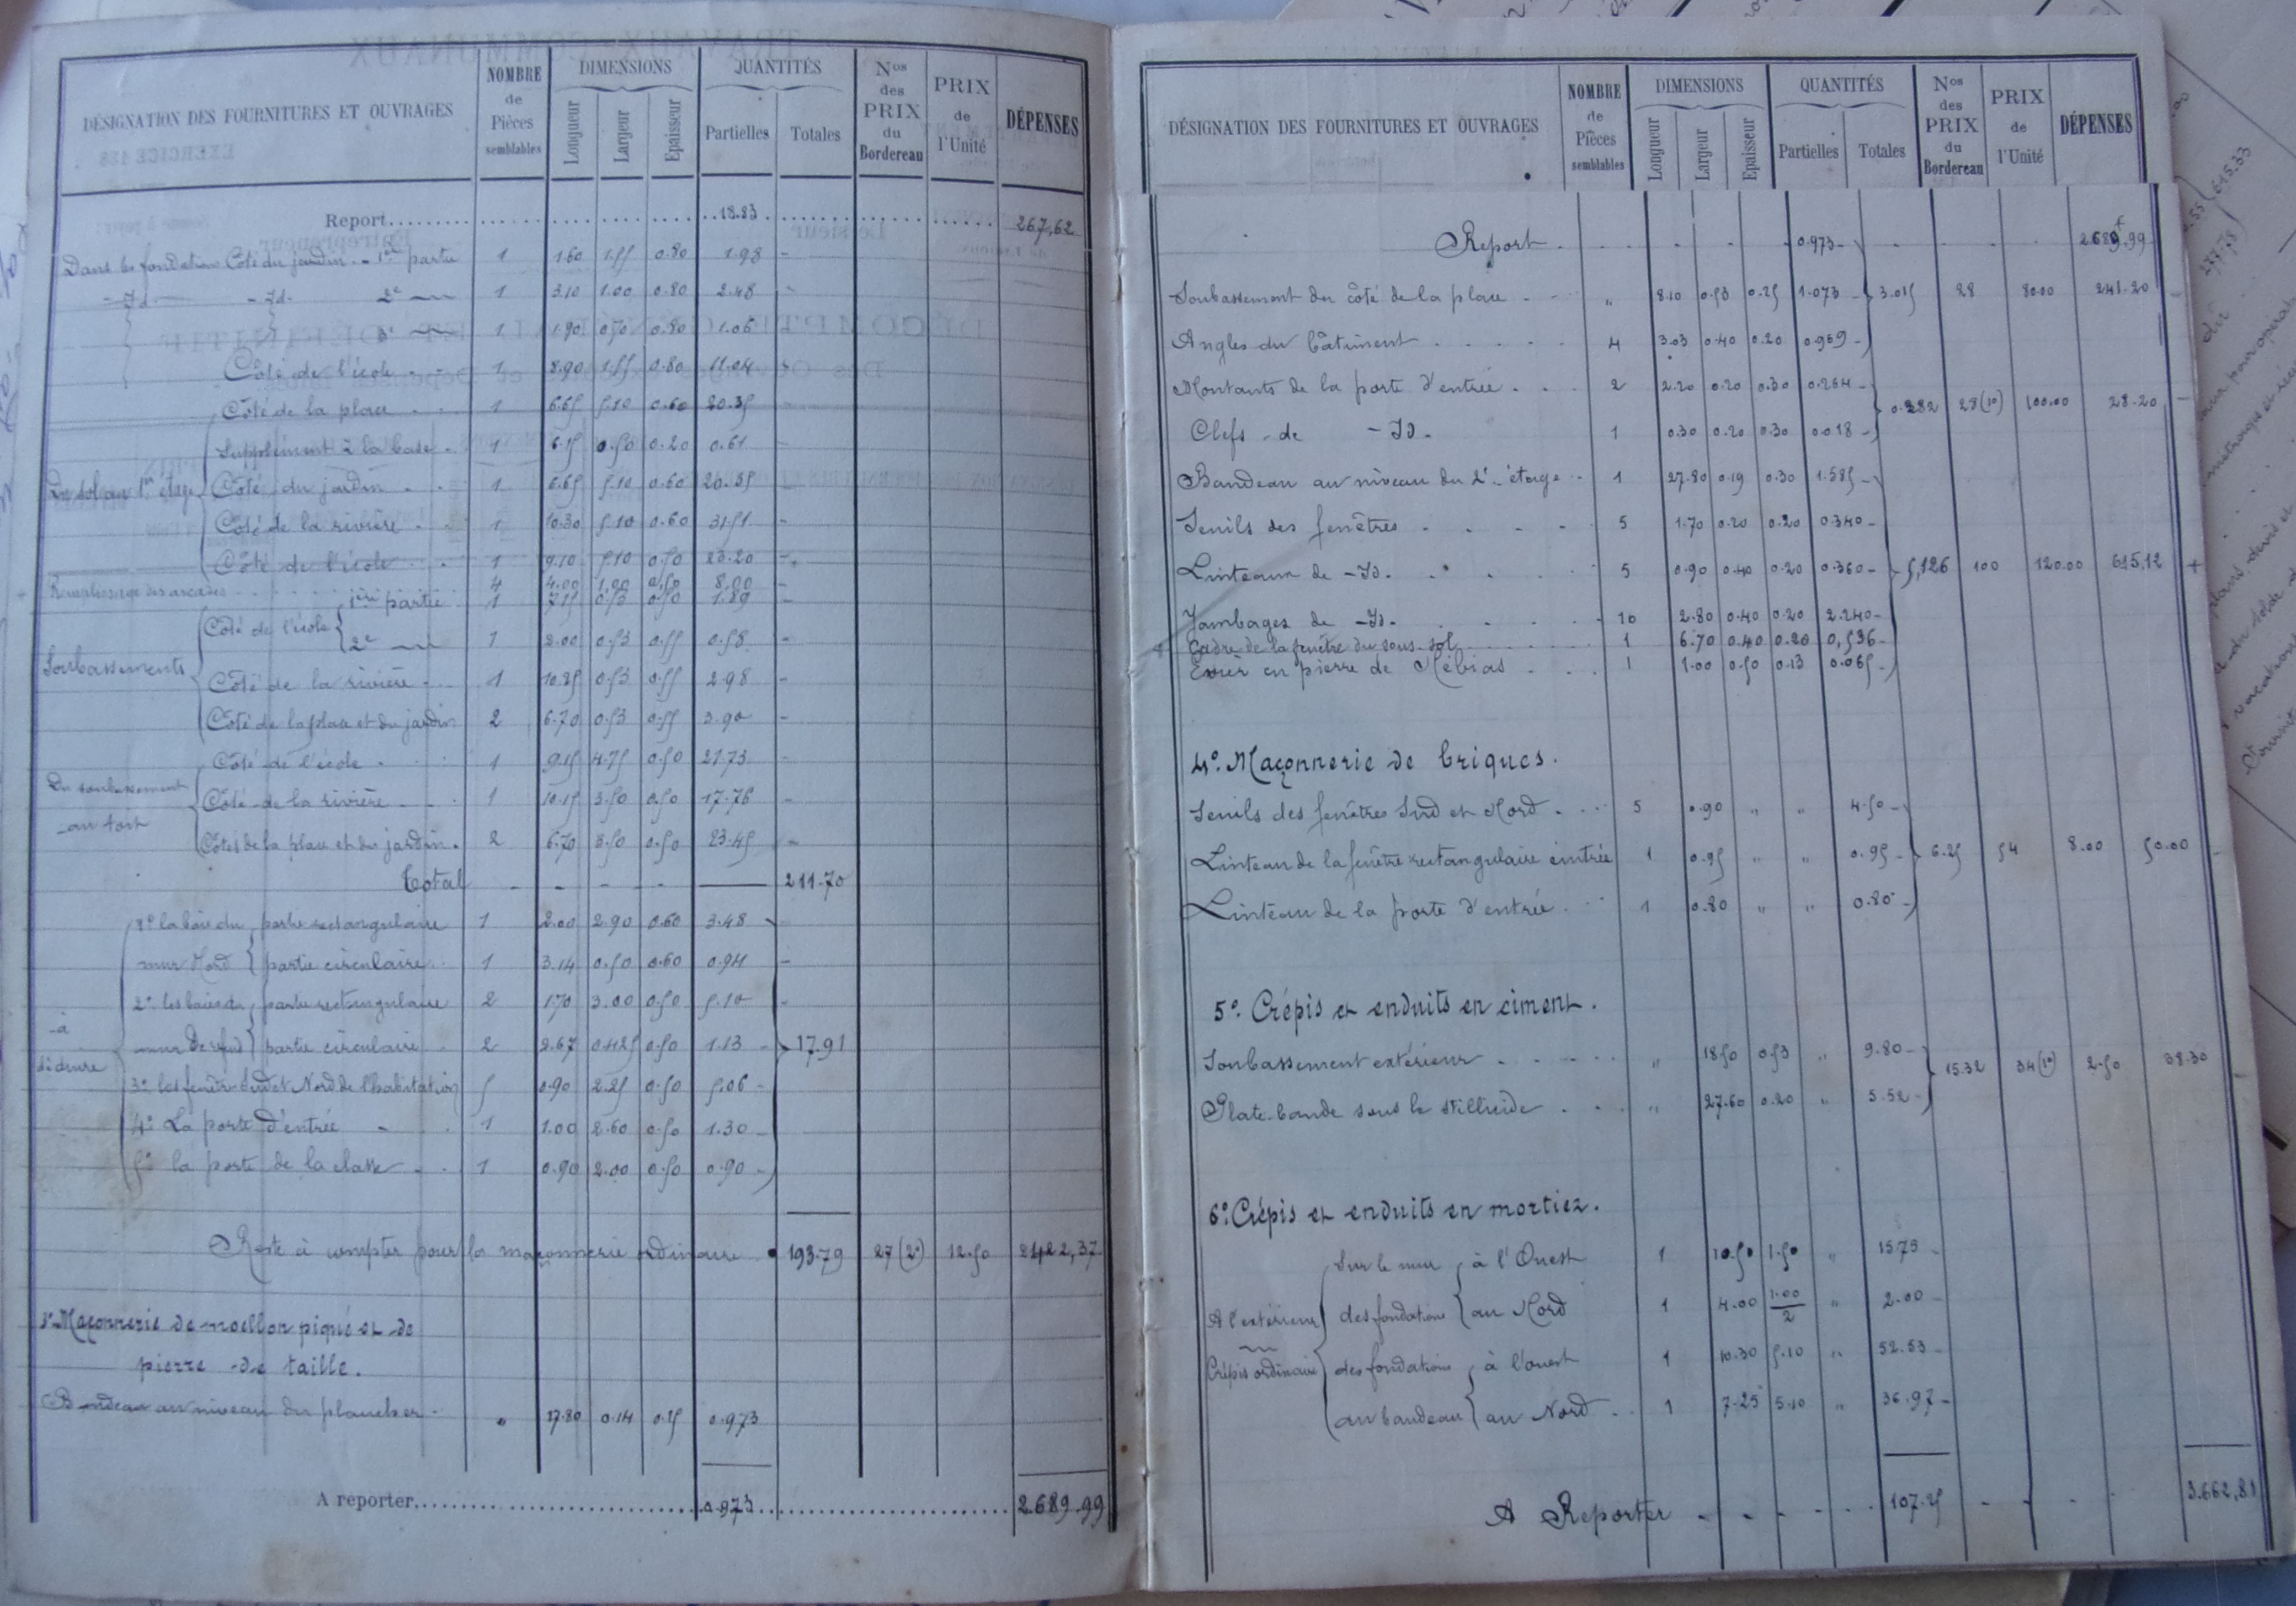 DÉSIGNATION DES FOURNITURES ET OUVRAGES NOMBRE de Pièces semblables DIMENSIONS Longueur Largeur Epaisseur QUANTITÉS Partielles Totales Nos des PRIX du Bordereau PRIX de l'Unité DÉPENSES
Report 18.83 267,62
Dans les fondations Côté du jardin - 1ère partie 1 1.60 1.55 0.80 1.98
- Id - - Id - 2e 1 3.10 1.00 0.80 2.48
3e 1 1.90 0.70 0.80 1.06
Côté de l'école 1 8.90 1.55 0.80 11.04
Du sol au 1er étage
Côté de la place 1 6.65 5.10 0.60 20.35
Supplément à la base 1 6.15 0.50 0.20 0.61
Côté du jardin 1 6.65 5.10 0.60 20.35
Côté de la rivière 1 10.30 5.10 0.60 31.51
Côté de l'école 1 9.10 5.10 0.50 23.20
Remplissage des arcades 4 4.00 1.00 0.50 8.00
Soubassements
Côté de l'école 1ère partie 1 7.15 0.53 0.50 1.89
2e 1 2.00 0.53 0.55 0.58
Côté de la rivière 1 10.25 0.53 0.55 2.98
Côté de la place et du jardin 2 6.70 0.53 0.55 3.90
Du soubassement au toit
Côté de l'école 1 9.15 4.75 0.50 21.73
Côté de la rivière 1 10.15 3.50 0.50 17.76
Côtés de la place et du jardin 2 6.70 3.50 0.50 23.45
Total 211.70
à déduire
1° la baie du mur Nord partie rectangulaire 1 2.00 2.90 0.60 3.48
partie circulaire 1 3.14 0.50 0.60 0.94
2° les baies du mur de refend partie rectangulaire 2 1.70 3.00 0.50 5.10
partie circulaire 2 2.67 0.425 0.50 1.13 17.91
3° les fenêtres Sud et Nord de l'habitation 5 0.90 2.25 0.50 5.06
4° La porte d'entrée 1 1.00 2.60 0.50 1.30
5° la porte de la classe 1 0.90 2.00 0.50 0.90
Reste à compter pour la maçonnerie ordinaire 193.79 27 (2°) 12.50 2422,37
3° Maçonnerie de moellon piqué et de
pierre de taille.
Bandeau au niveau du plancher 27.80 0.14 0.25 0.973
A reporter 0.973 2.689.99
DÉSIGNATION DES FOURNITURES ET OUVRAGES NOMBRE de Pièces semblables DIMENSIONS Longueur Largeur Epaisseur QUANTITÉS Partielles Totales Nos des PRIX du Bordereau PRIX de l'Unité DÉPENSES
Report 0.973 2689.99
Soubassement du côté de la place " 8.10 0.53 0.25 1.073 3.015 28 80.00 241.20
Angles du bâtiment 4 3.03 0.40 0.20 0.969
Montants de la porte d'entrée 2 2.20 0.20 0.30 0.264
Clefs de - Id - 1 0.30 0.20 0.30 0.018 0.282 28 (1°) 100.00 28.20
Bandeau au niveau du 2e étage 1 27.80 0.19 0.30 1.585
Seuils des fenêtres 5 1.70 0.20 0.20 0.340
Linteaux de - Id. 5 0.90 0.40 0.20 0.360 5,126 100 120.00 615,12
Jambages de - Id - 10 2.80 0.40 0.20 2.240
Cadre de la fenêtre du sous-sol 1 6.70 0.40 0.20 0,536
Evier en pierre de 1 1.00 0.50 0.13 0.065
4° Maçonnerie de briques.
Seuils des fenêtres Sud et Nord 5 0.90 " " 4.50
Linteau de la fenêtre rectangulaire cintrée 1 0.95 " " 0.95 6.25 54 8.00 50.00
Linteau de la porte d'entrée 1 0.80 " " 0.80
5° Crépis et enduits en ciment.
Soubassement extérieur " 18.50 0.53 " 9.80 15.32 34 (1°) 2.50 38.30
Plate-bande sous le " 27.60 0.20 " 5.52
6° Crépis et enduits en mortier.
A l'extérieur
Crépis ordinaire
Sur le mur des fondations à l'Ouest 1 10.50 1.50 " 15.75
au Nord 1 4.00 1.00/2 " 2.00
des fondations au bandeau à l'ouest 1 10.30 5.10 " 52.53
au Nord 1 7.25 5.10 " 36.97
A Reporter 107.25 3.662,81